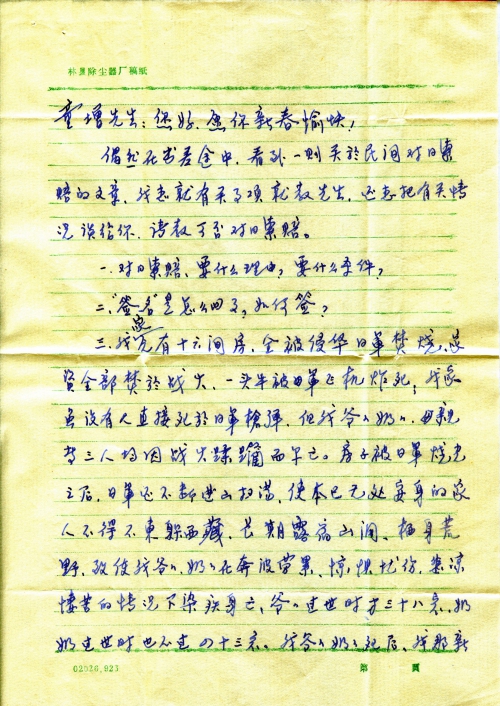 林县除尘器厂稿纸
童增先生：您好，愿你新春愉快！
偶然在书店途中，看到一则关於民间对日索
赔的文章，我想就有关事项就教先生，还想把有关情
况谈给你，请教可否对日索赔。
一、对日索赔、要什么理由，要什么条件？
二、“签名”是怎么回事，如何签？
三、我家原有十六间房，全被侵华日軍焚烧，家
资全部焚於战火，一头牛被日軍飞机炸死，我家
虽没有人直接死於日軍槍弹，但我爷爷、奶奶、母親
等三人均因战火蹂躏而早亡。房子被日軍烧光
之后，日軍还不断进山扫荡，使本已无处安身的家
人不得不東躲西藏，长期露宿山洞，栖身荒
野，致使我爷爷、奶奶在奔波劳累、惊惧忧伤、凄凉
悽苦的情况下染疾身亡，爷爷过世时才三十八岁，奶
奶过世时也不过四十三岁。我爷爷奶奶死后，我那新
02026.823 第 頁